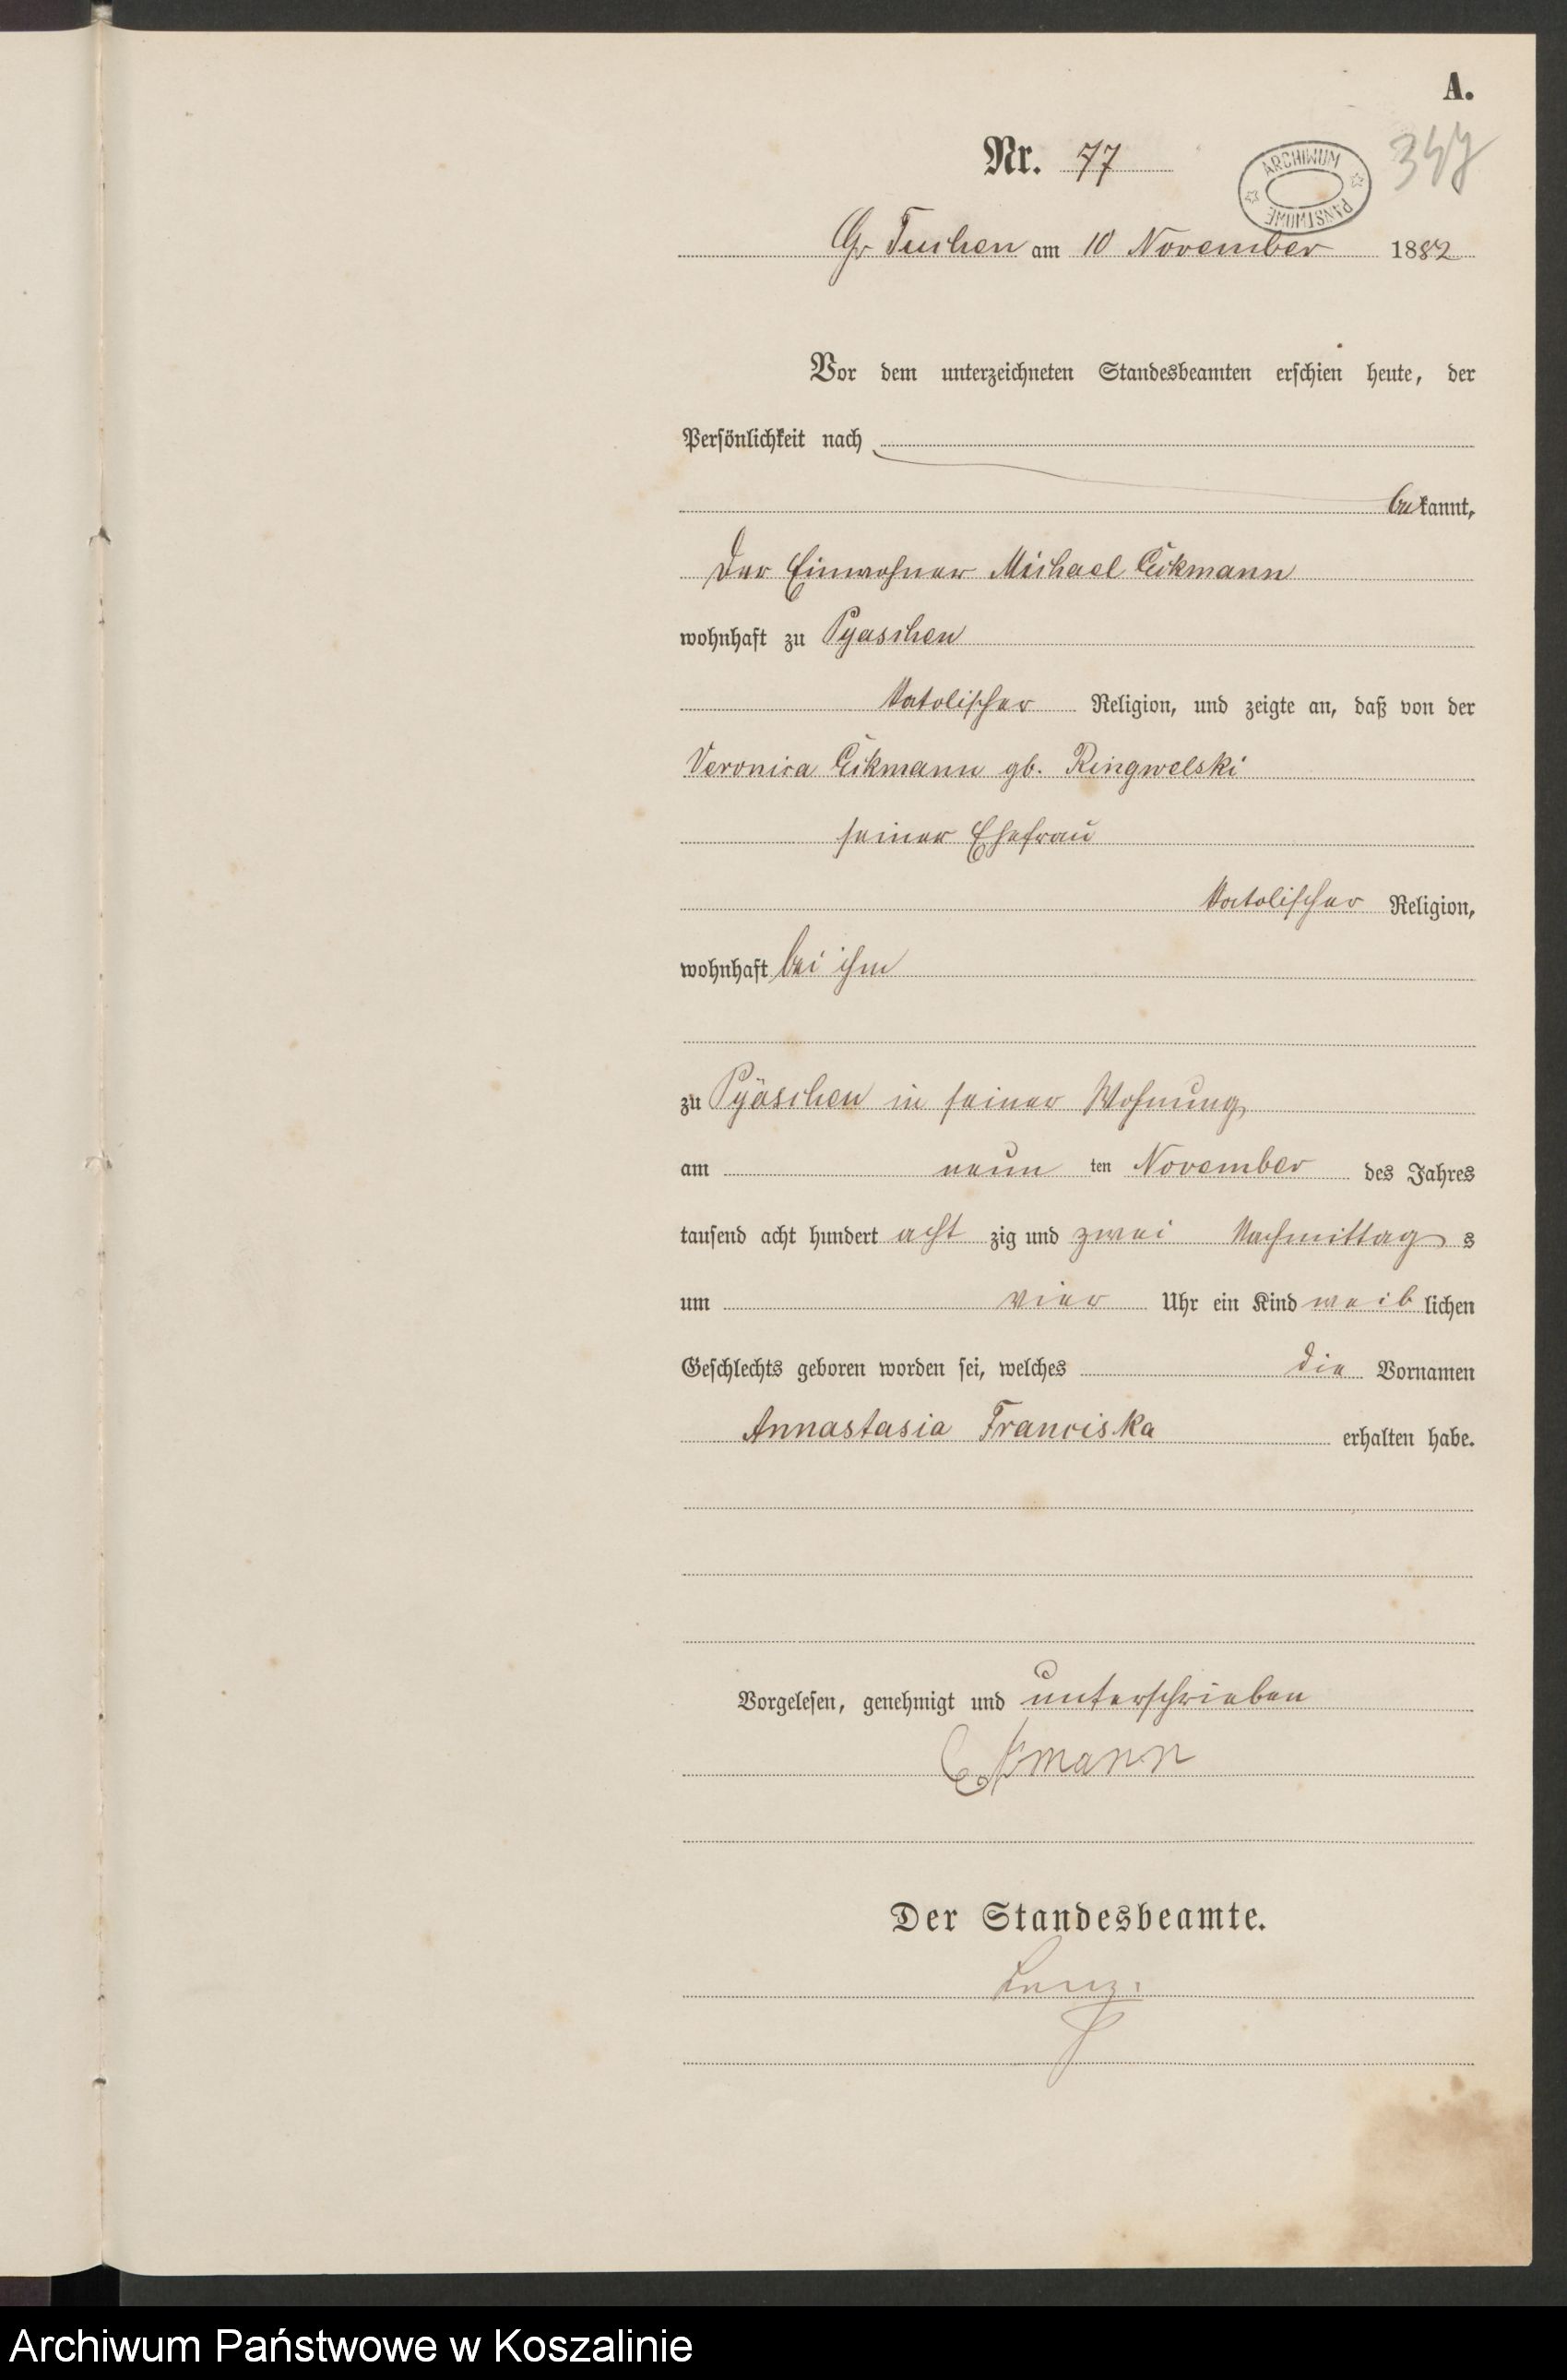 A.
Nr. 77
ARCHIWUM PAŃSTWOWE
347
Gr Tuchen am 10 November 1882
Vor dem unterzeichneten Standesbeamten erschien heute, der
Persönlichkeit nach
bekannt,
der Einwohner Michael Eickmann
wohnhaft zu Pyaschen
katolischer Religion, und zeigte an, daß von der
Veronica Eickmann gb. Ringwelski
seiner Ehefrau
katolischer Religion,
wohnhaft bei ihm
zu Pyaschen in seiner Wohnung,
am neun ten November des Jahres
tausend acht hundert acht zig und zwei Nachmittag s
um vier Uhr ein Kind weib lichen
Geschlechts geboren worden sei, welches die Vornamen
Annastasia Franciska erhalten habe.
Vorgelesen, genehmigt und unterschrieben
Der Standesbeamte.
Lenz.
Archiwum Państwowe w Koszalinie